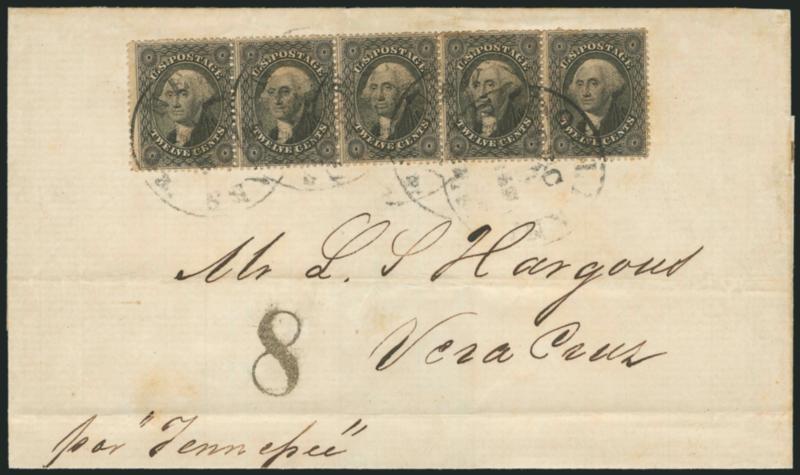 U.S. POSTAGE U.S. POSTAGE U.S. POSTAGE U.S. POSTAGE U.S. POSTAGE
TWELVE CENTS TWELVE CENTS TWELVE CENTS TWELVE CENTS TWELVE CENTS
Mr L. S Hargous
8
Vera Cruz
por "Tenneſsee"